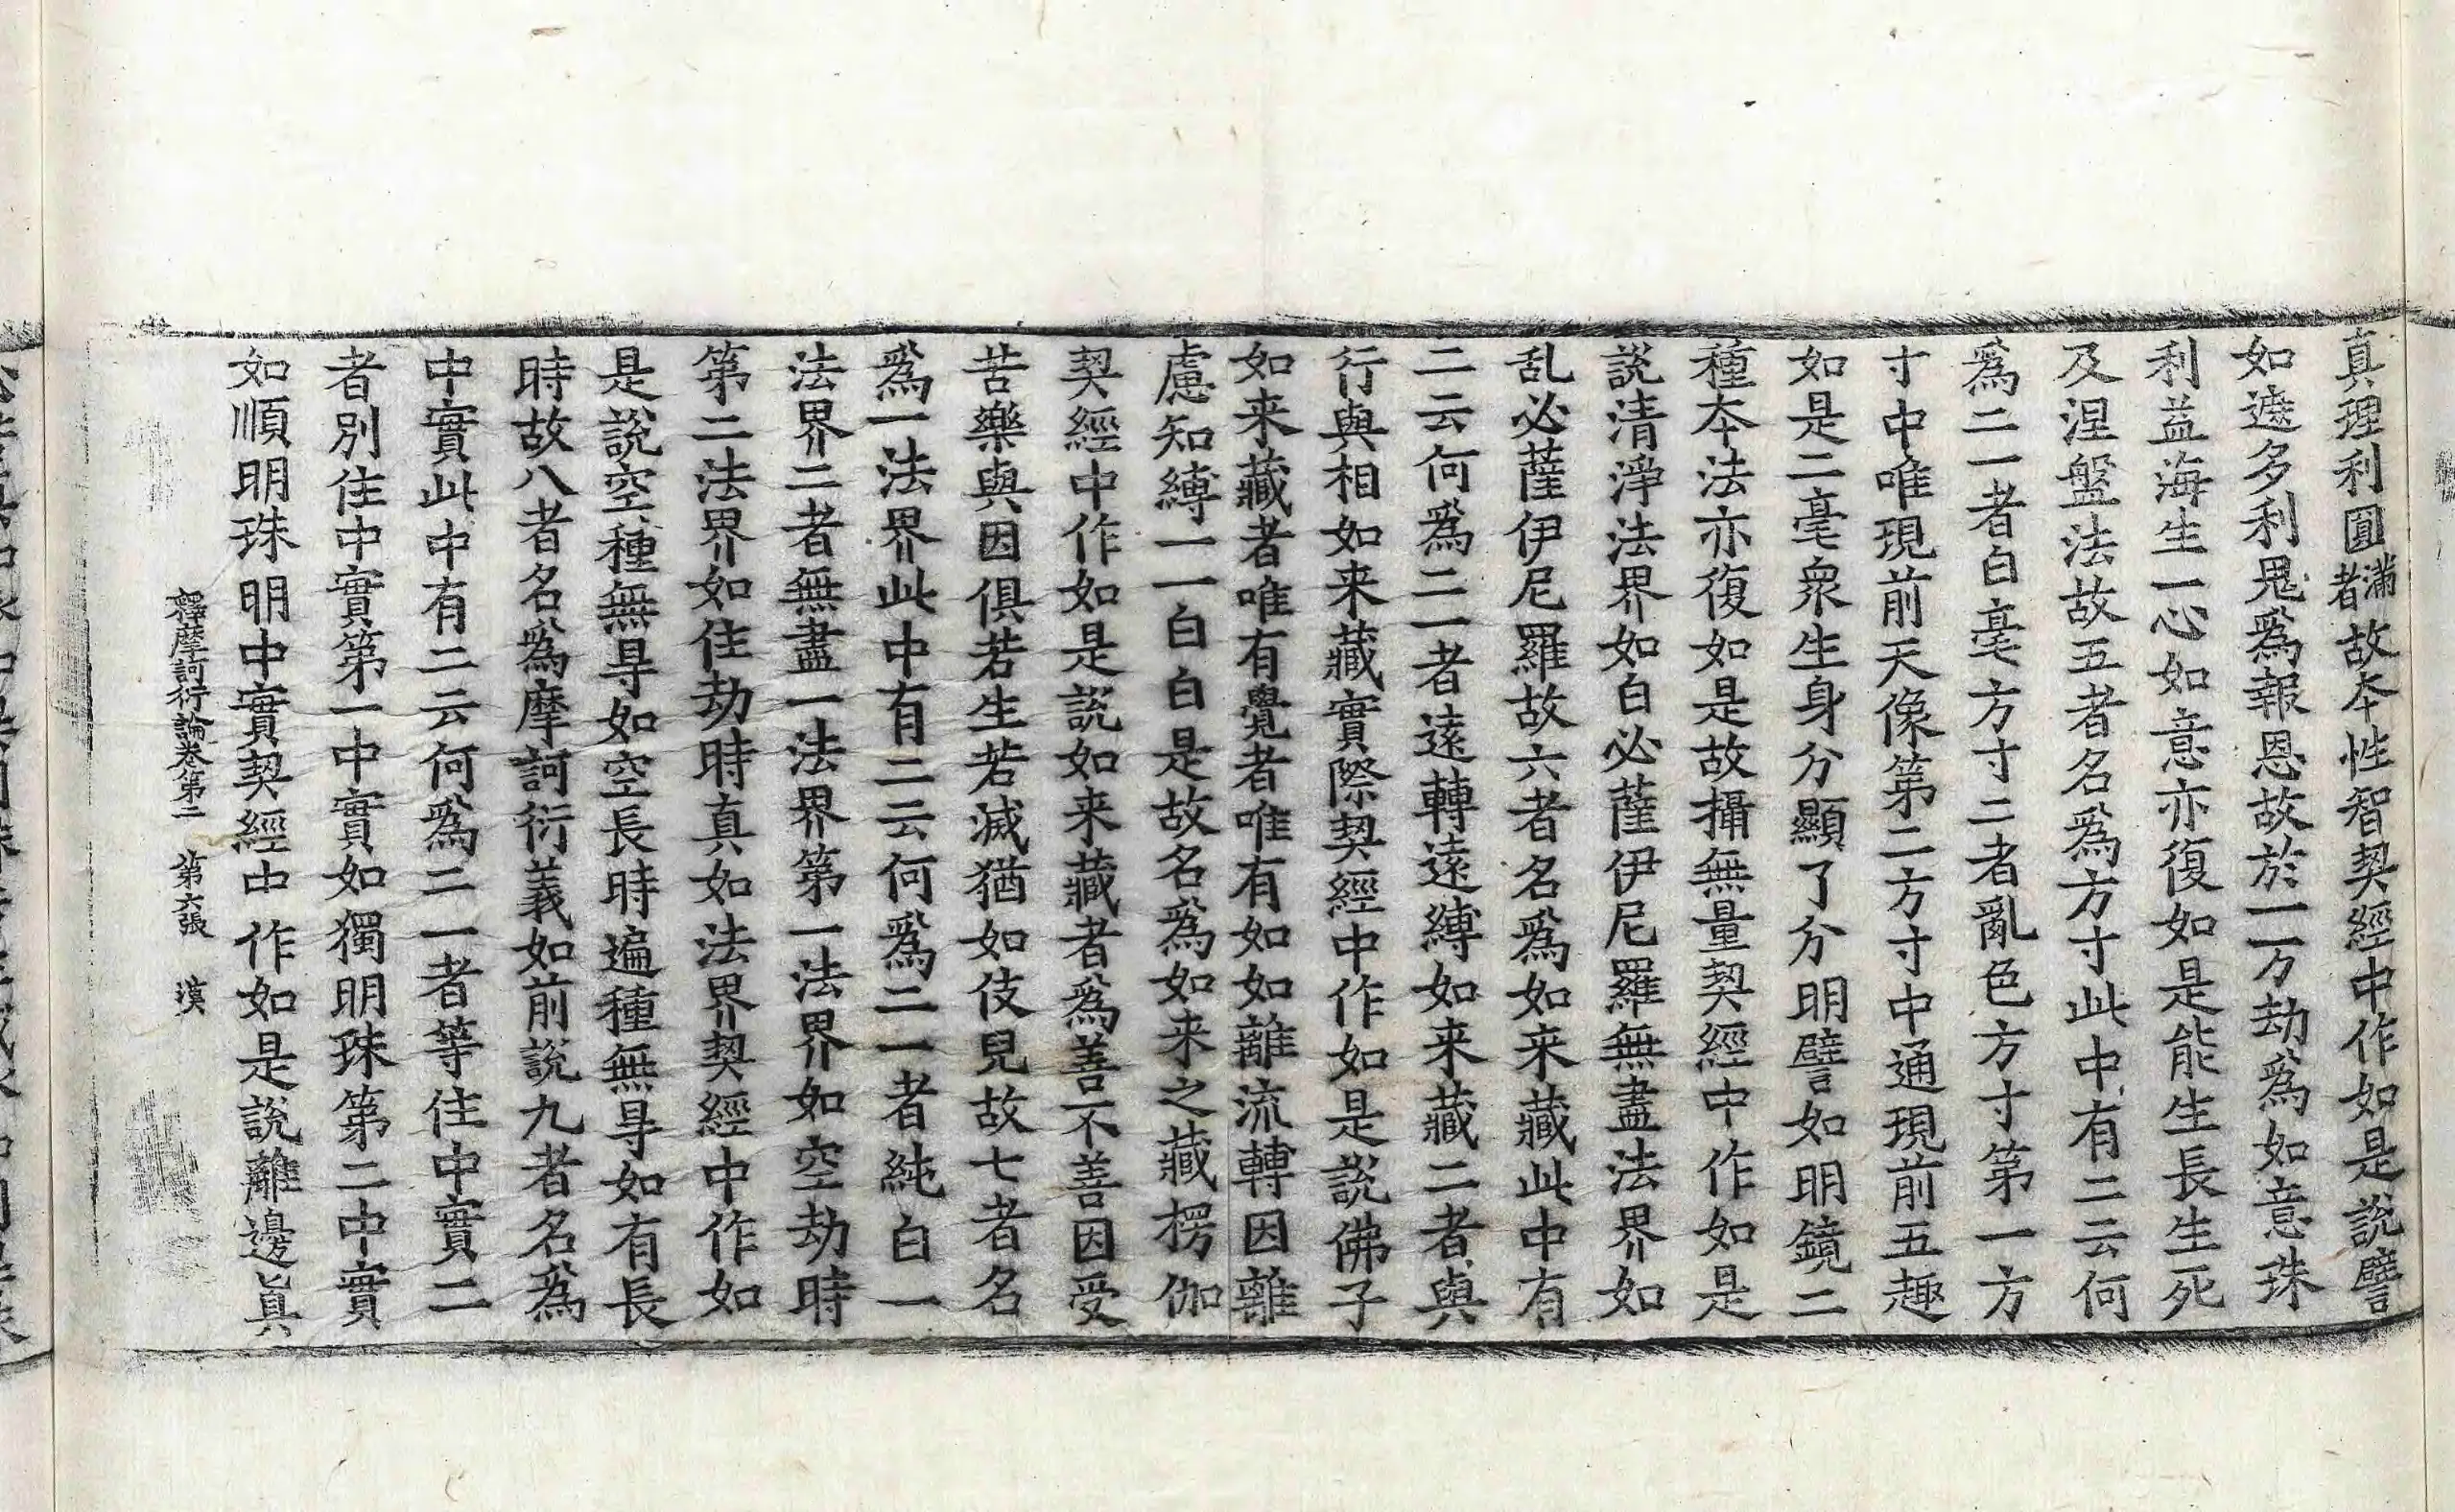 真理利圓滿者故本性智契經中作如是說譬
如遮多利鬼爲報恩故於一万劫爲如意珠
利益海生一心如意亦復如是能生長生死
及涅盤法故五者名爲方寸此中有二云何
爲二一者白毫方寸二者亂色方寸第一方
寸中唯現前天像第二方寸中通現前五趣
如是二毫衆生身分顯了分明譬如明鏡二
種本法亦復如是故攝無量契經中作如是
說清淨法界如白必薩伊尼羅無盡法界如
乱必薩伊尼羅故六者名爲如来藏此中有
二云何爲二一者遠轉遠縛如来藏二者與
行與相如来藏實際契經中作如是說佛子
如来藏者唯有覺者唯有如如離流轉因離
慮知縛一一白白是故名爲如来之藏楞伽
契經中作如是說如来藏者爲善不善因受
苦樂與因俱若生若滅猶如伎兒故七者名
爲一法界此中有二云何爲二一者純白一
法界二者無盡一法界第一法界如空劫時
第二法界如住劫時真如法界契經中作如
是說空種無㝵如空長時遍種無㝵如有長
時故八者名爲摩訶衍義如前說九者名爲
中實此中有二云何爲二一者等住中實二
者別住中實第一中實如獨明珠第二中實
如順明珠明中實契經中作如是說離邊眞
釋摩訶衍論卷第二　第六張　漠